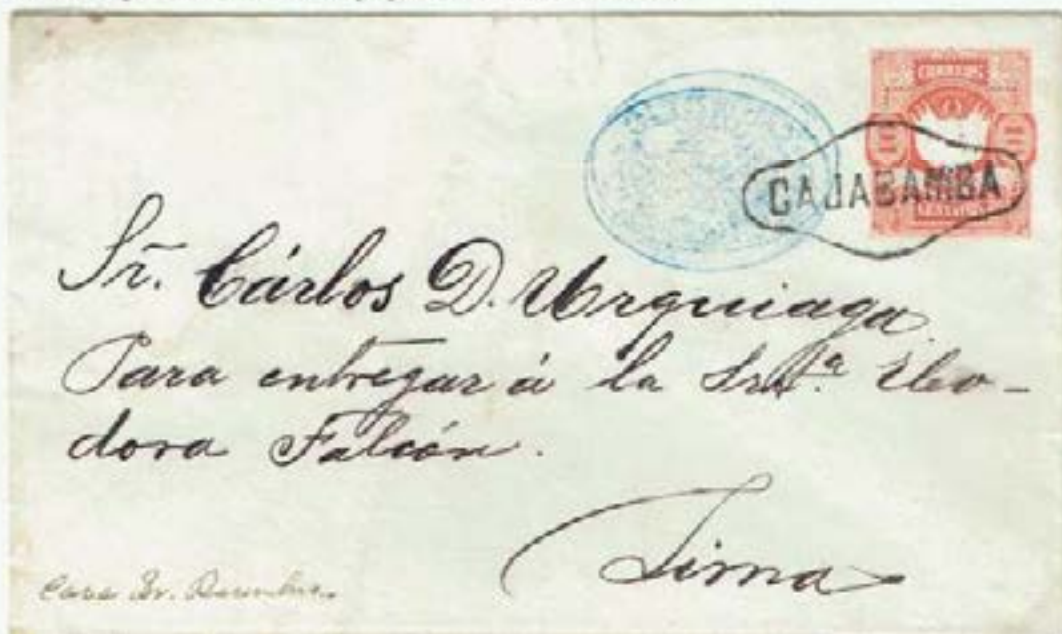 10 10
CAJABAMBA
Sr. Cárlos D. Urquiaga
Para entregar á la Srta. Eleo-
dora Falcón.
Lima
Casa Dr.